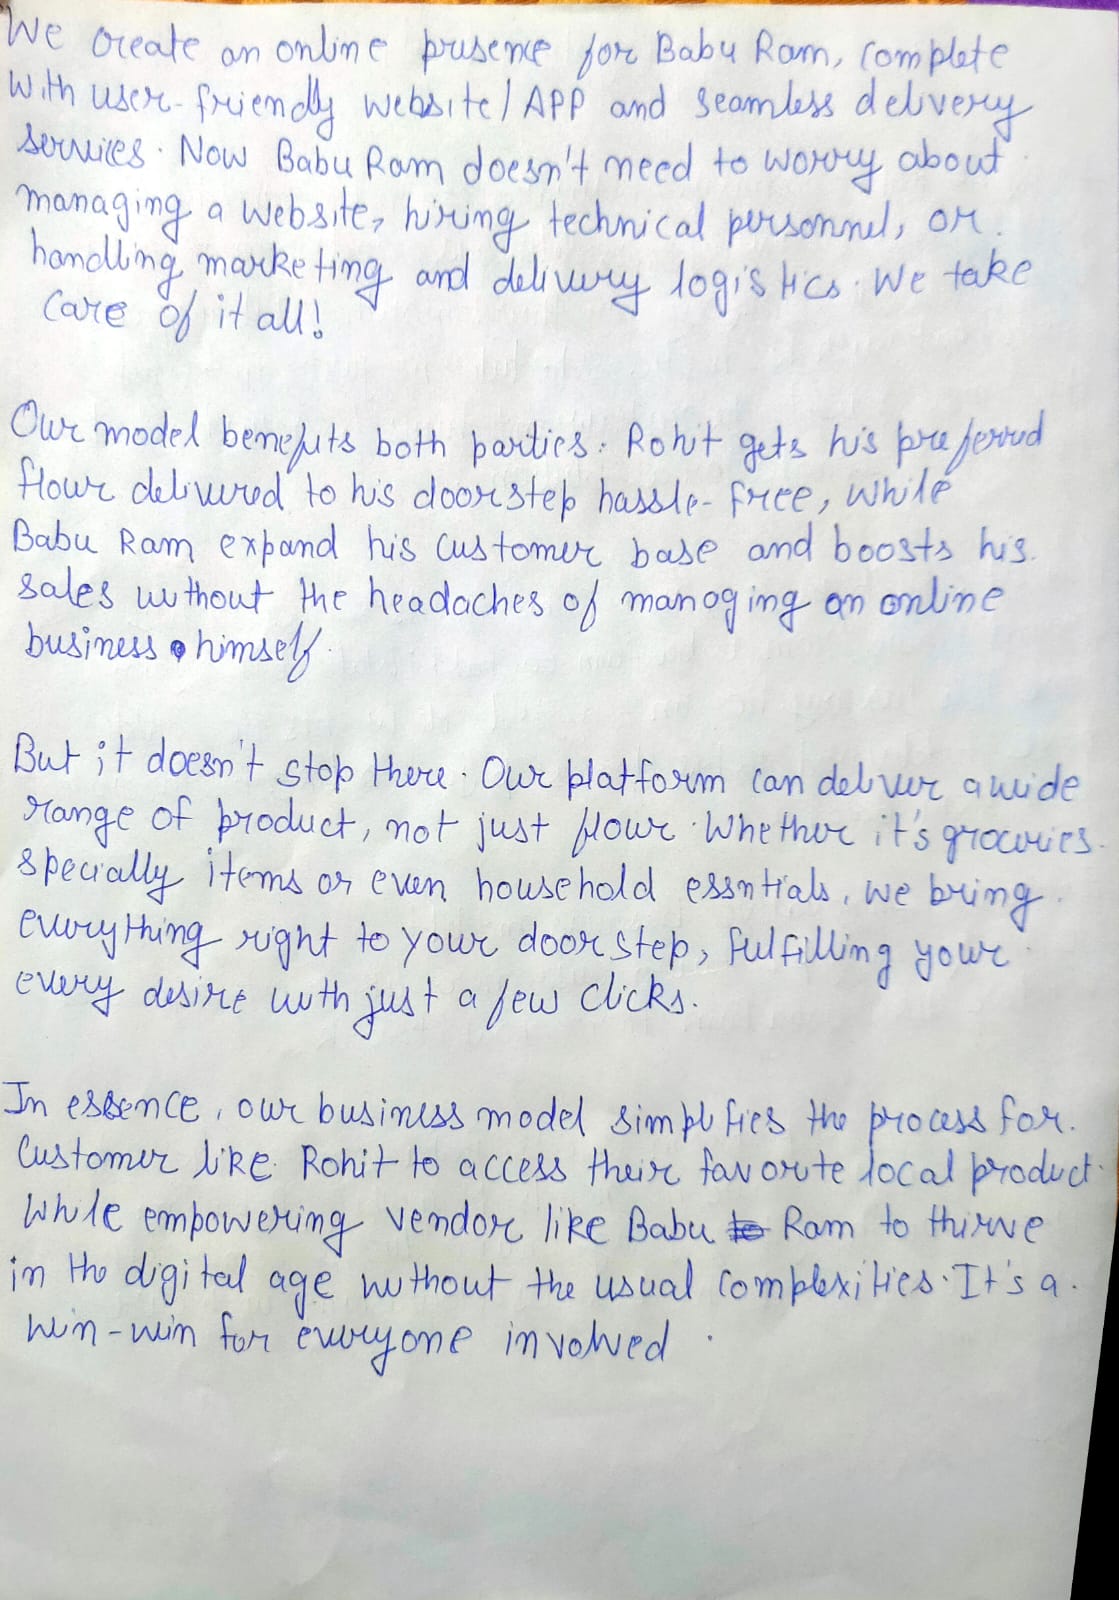 We create an online presence for Babu Ram, complete
With user-friendly website/APP and seamless delivery
services. Now Babu Ram doesn't need to worry about
managing a website, hiring technical personnel, or
handling marketing and delivery logistics. We take
care of it all!
Our model benefits both parties. Rohit gets his preferred
flour delivered to his doorstep hassle-free, while
Babu Ram expand his customer base and boosts his
sales without the headaches of managing an online
business himself.
But it doesn't stop there. Our platform can deliver a wide
range of product, not just flour. Whether it's groceries
specially items or even household essntials, we bring
everything right to your doorstep, fulfilling your
every desire with just a few clicks.
In essence, our business model simplifies the process for
Customer like Rohit to access their favorite local product
While empowering vendor like Babu Ram to thirve
in the digital age without the usual complexities. It's a
win-win for everyone involved.